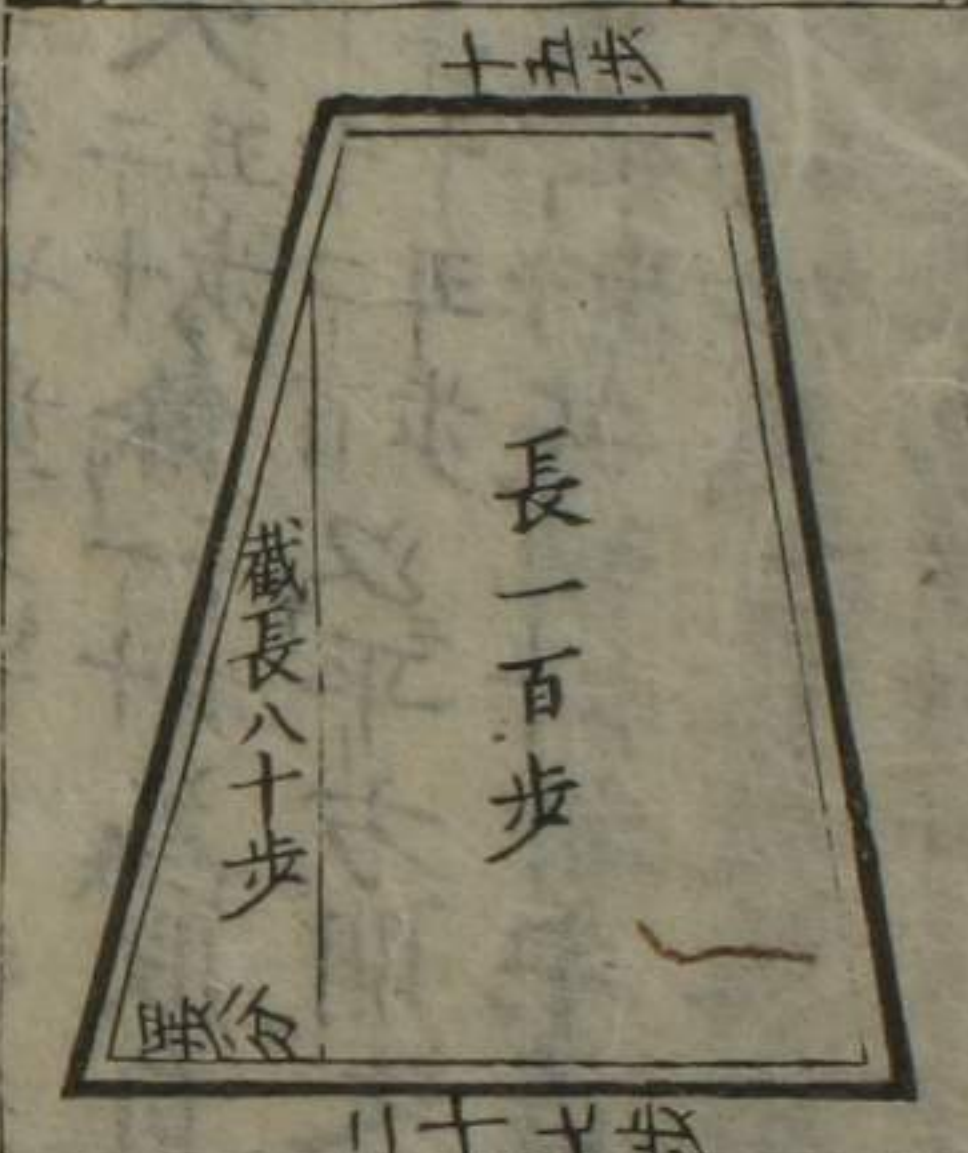 十五步
長一百步
截長八十步
四步八分
二十七步